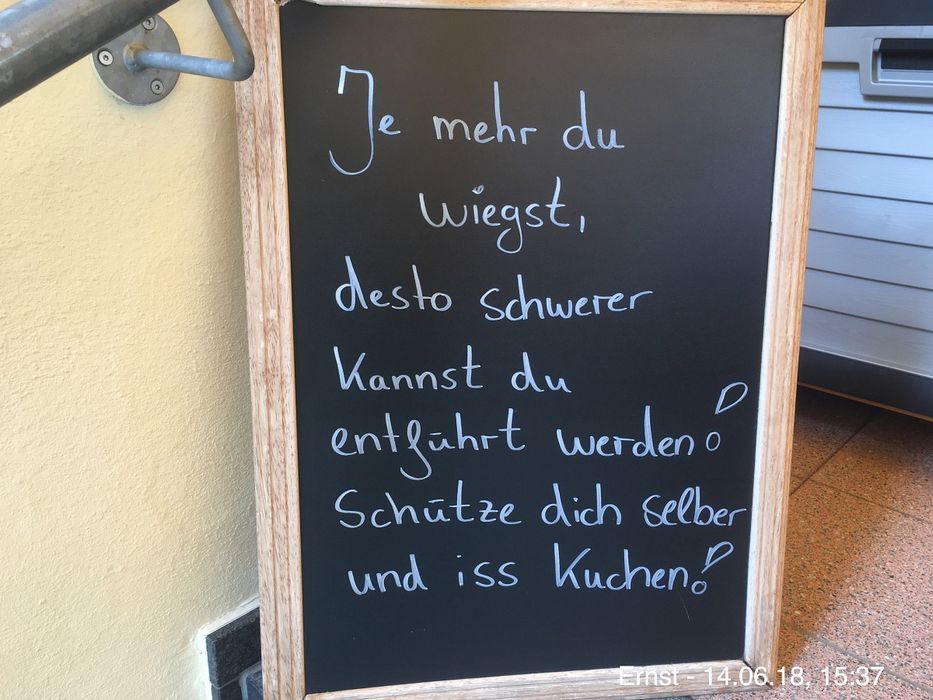 Je mehr du
wiegst,
desto schwerer
kannst du
entführt werden!
Schütze dich selber
und iss Kuchen!
Ernst - 14.06.18, 15:37